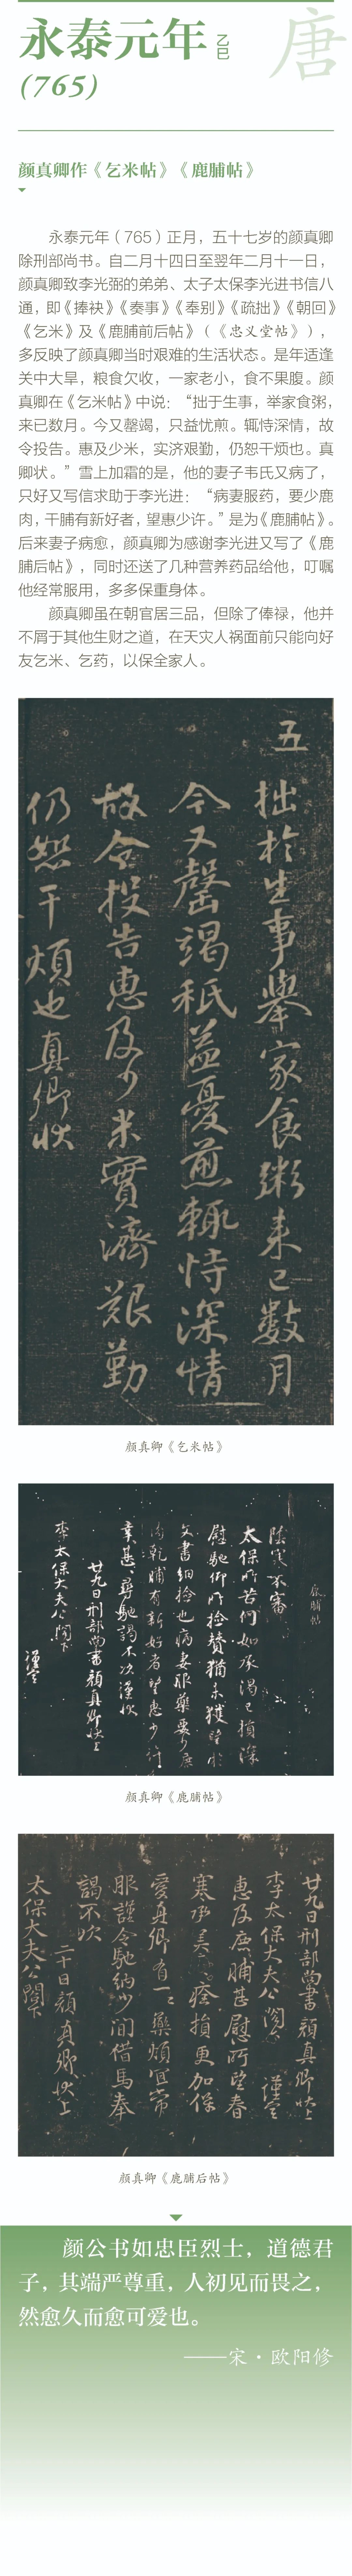 永泰元年 乙巳
唐
(765)
颜真卿作《乞米帖》《鹿脯帖》
永泰元年（765）正月，五十七岁的颜真卿
除刑部尚书。自二月十四日至翌年二月十一日，
颜真卿致李光弼的弟弟、太子太保李光进书信八
通，即《捧袂》《奏事》《奉别》《疏拙》《朝回》
《乞米》及《鹿脯前后帖》（《忠义堂帖》），
多反映了颜真卿当时艰难的生活状态。是年适逢
关中大旱，粮食欠收，一家老小，食不果腹。颜
真卿在《乞米帖》中说：“拙于生事，举家食粥，
来已数月。今又罄竭，只益忧煎。辄恃深情，故
令投告。惠及少米，实济艰勤，仍恕干烦也。真
卿状。”雪上加霜的是，他的妻子韦氏又病了，
只好又写信求助于李光进：“病妻服药，要少鹿
肉，干脯有新好者，望惠少许。”是为《鹿脯帖》。
后来妻子病愈，颜真卿为感谢李光进又写了《鹿
脯后帖》，同时还送了几种营养药品给他，叮嘱
他经常服用，多多保重身体。
颜真卿虽在朝官居三品，但除了俸禄，他并
不屑于其他生财之道，在天灾人祸面前只能向好
友乞米、乞药，以保全家人。
五
拙於生事舉家食粥来已數月
今又罄竭秖益憂煎輒恃深情
故令投告惠及少米實濟艱勤
仍恕干煩也真卿狀
颜真卿《乞米帖》
鹿脯帖
陰寒不審
太保所苦何如承渴已損深
慰馳仰所捡贊猶未獲望於
文書細捡也病妻服藥要少鹿
肉乾脯有新好者望惠少許
幸甚幸甚馳謁不次謹狀
廿九日刑部尚書顏真卿狀上
李太保大夫公閤下
謹空
颜真卿《鹿脯帖》
廿九日刑部尚書顏真卿狀上
李太保大夫公閤下 謹空
惠及鹿脯甚慰所望春
寒承美痊損更加保
愛真卿有一二藥煩宜常
服謹令馳納少間借馬奉
謁不次
二十日顏真卿狀上
太保大夫公閤下
颜真卿《鹿脯后帖》
颜公书如忠臣烈士，道德君
子，其端严尊重，人初见而畏之，
然愈久而愈可爱也。
——宋·欧阳修